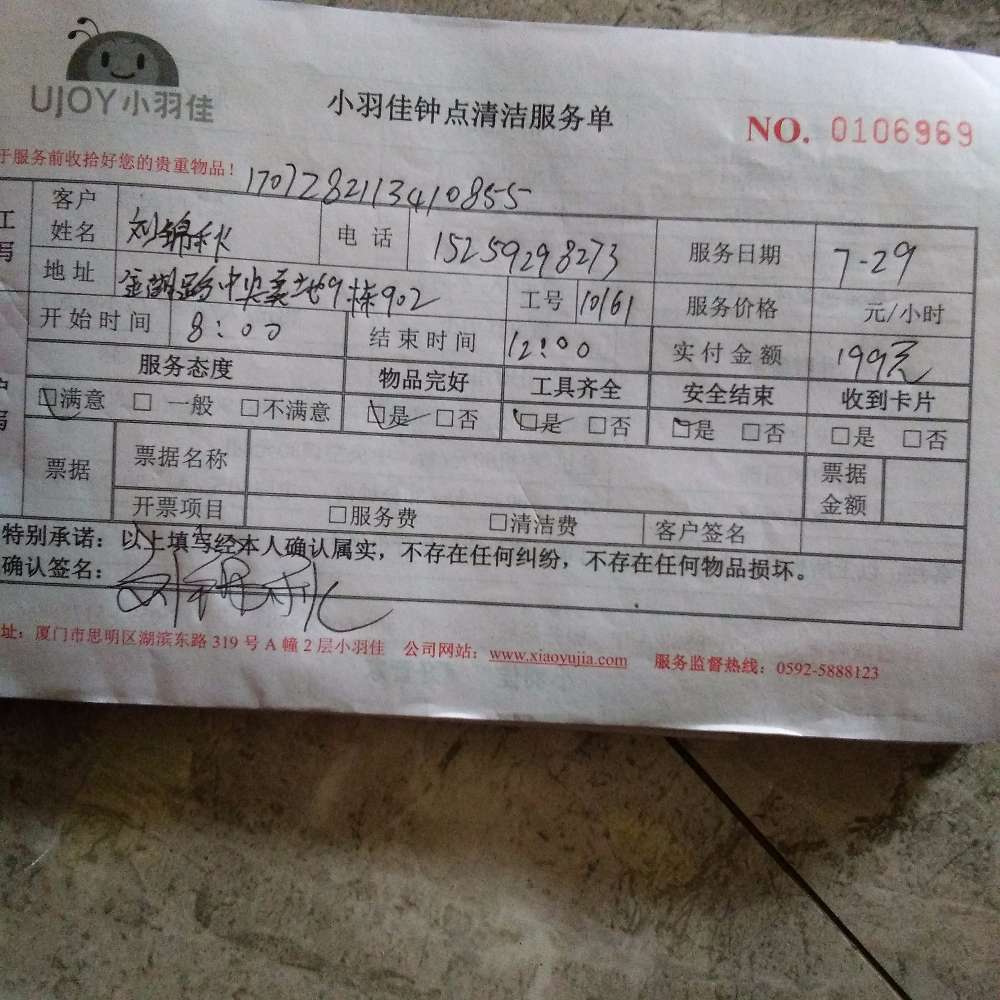 UJOY小羽佳
小羽佳钟点清洁服务单
NO. 0106969
于服务前收拾好您的贵重物品！
1707282113410855
工 客户姓名 刘锦秋 电话 15259298273 服务日期 7-29
写 地址 金湖路中央美地9栋902 工号 10161 服务价格 元/小时
开始时间 8:00 结束时间 12:00 实付金额 199元
服务态度 物品完好 工具齐全 安全结束 收到卡片
户 ☑满意 □一般 □不满意 ☑是 □否 ☑是 □否 ☑是 □否 □是 □否
写 票据 票据名称 票据金额
开票项目 □服务费 □清洁费 客户签名
特别承诺：以上填写经本人确认属实，不存在任何纠纷，不存在任何物品损坏。
确认签名：刘锦秋
址：厦门市思明区湖滨东路 319 号 A 幢 2 层小羽佳 公司网站：www.xiaoyujia.com 服务监督热线：0592-5888123